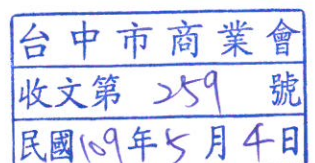 台中市商業會
收文第 259 號
民國109年5月4日